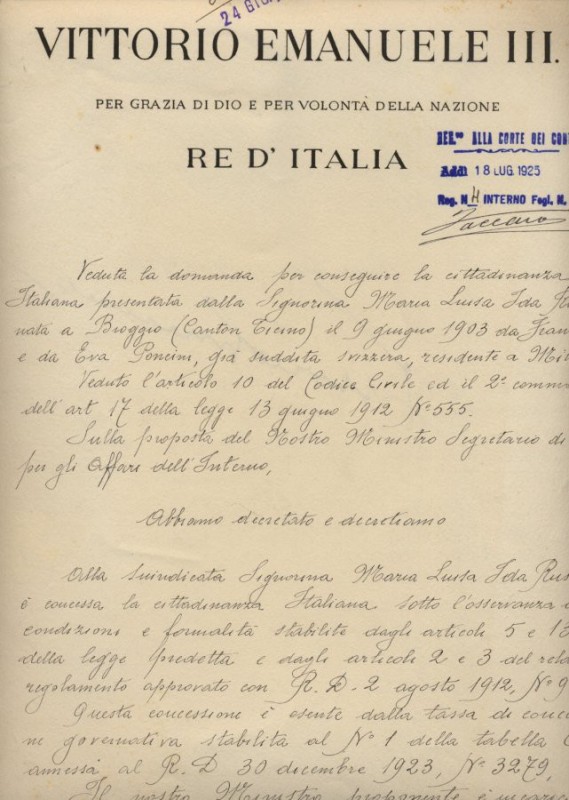 24 GIU
VITTORIO EMANUELE III.
PER GRAZIA DI DIO E PER VOLONTÀ DELLA NAZIONE
RE D'ITALIA
REG.to ALLA CORTE DEI CON
Addì 18 LUG. 1925
Reg. N. 4 INTERNO Fogl. N.
Veduta la domanda per conseguire la cittadinanza
Italiana presentata dalla Signorina Maria Luisa Ida Ru
nata a Bioggio (Canton Ticino) il 9 giugno 1903 da Fran
e da Eva Poncini, già suddita svizzera, residente a Mil
Veduto l'articolo 10 del Codice Civile ed il 2º comm
dell'art 17 della legge 13 giugno 1912 Nº 555.
Sulla proposta del Nostro Ministro Segretario di
per gli Affari dell'Interno,
Abbiamo decretato e decretiamo
Alla suindicata Signorina Maria Luisa Ida Rus
è concessa la cittadinanza Italiana sotto l'osservanza d
condizioni e formalità stabilite dagli articoli 5 e 13
della legge predetta e dagli articoli 2 e 3 del rela
regolamento approvato con R. D. 2 agosto 1912, Nº 9
Questa concessione è esente dalla tassa di conce
ne governativa stabilita al Nº 1 della tabella
annessa al R. D 30 dicembre 1923, Nº 3279,
Il nostro Ministro proponente è incaric